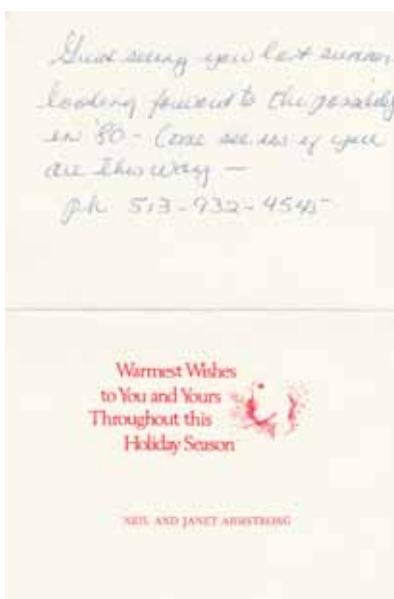 Great seeing you last summer
looking forward to the possibility
in '80 - Come see us if you
are this way —
ph 513-932-4545
Warmest Wishes
to You and Yours
Throughout this
Holiday Season
NEIL AND JANET ARMSTRONG